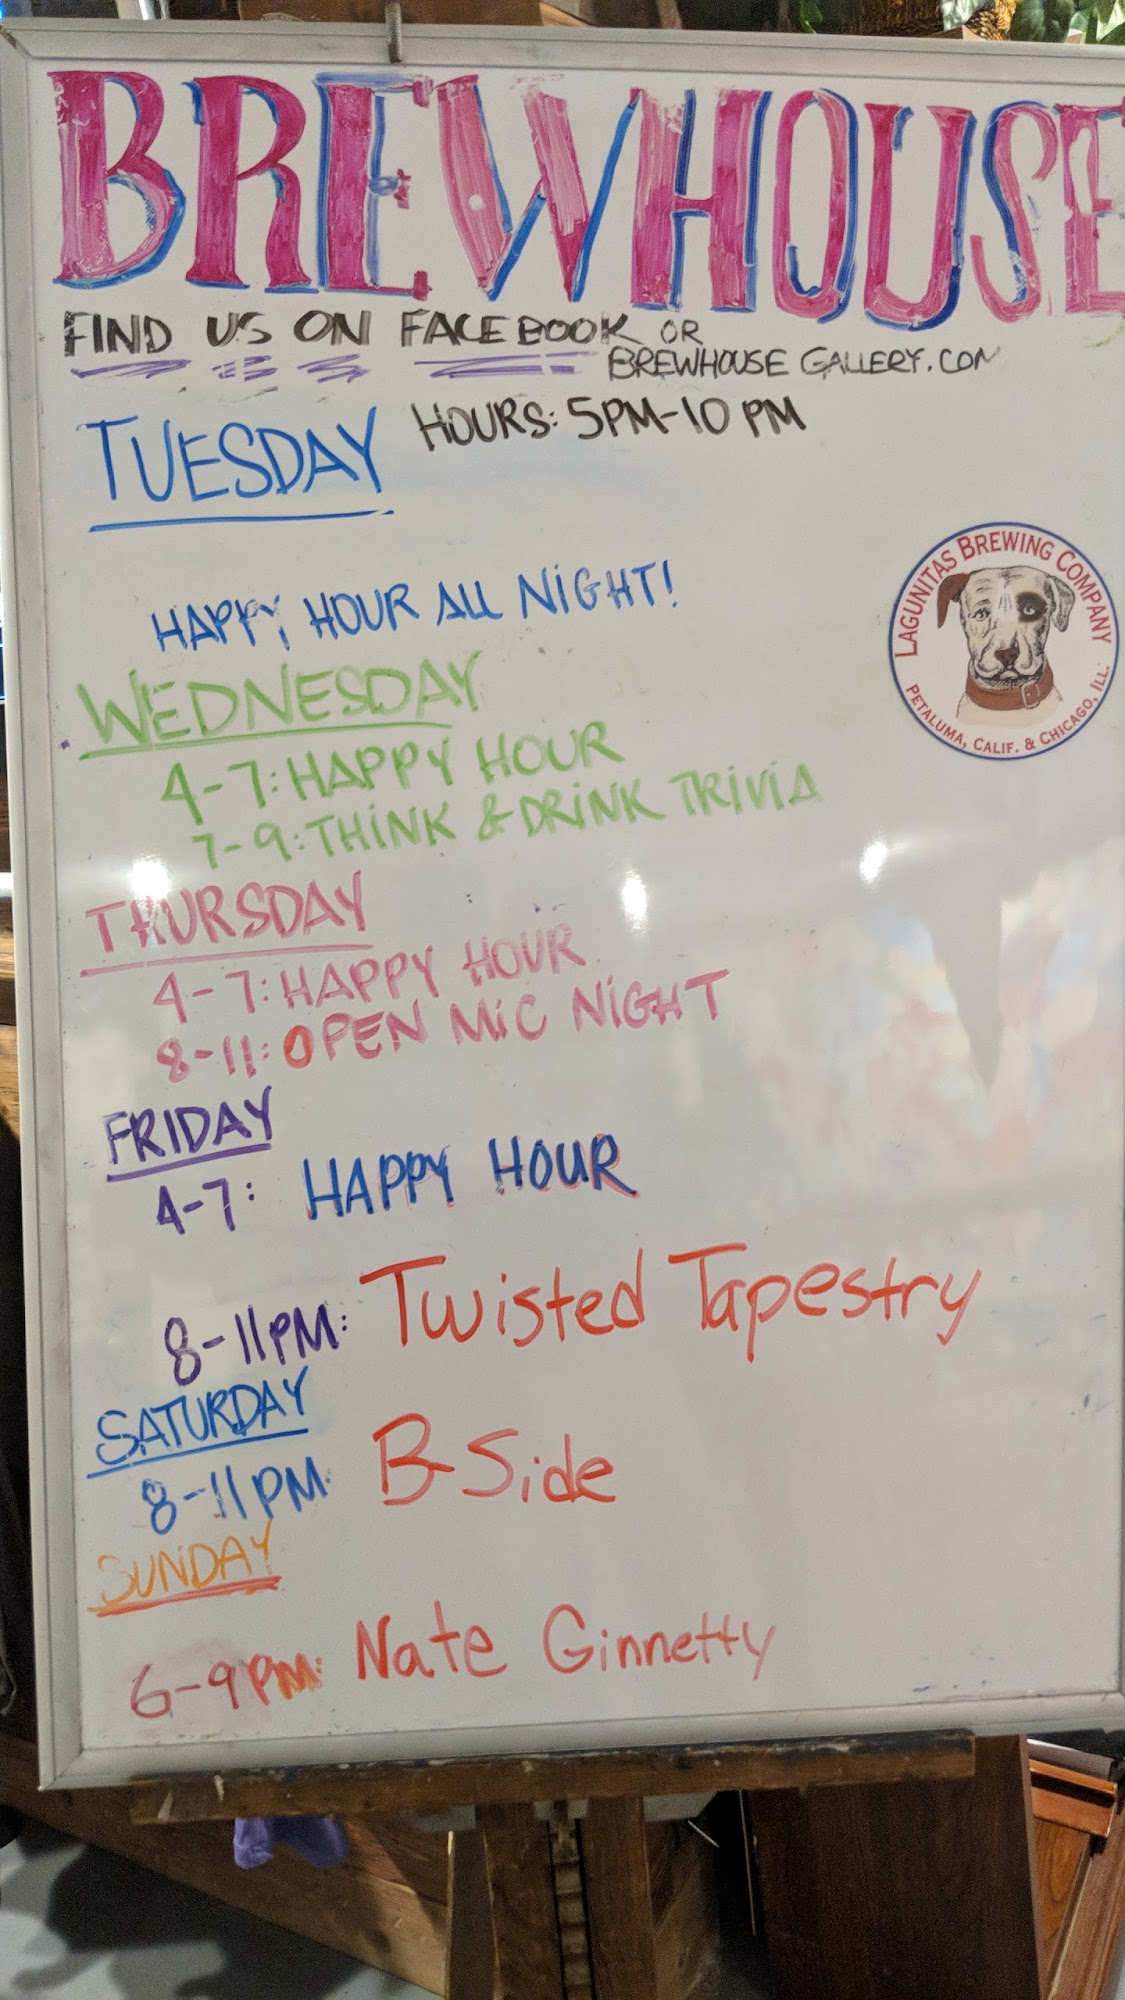 BREWHOUSE
FIND US ON FACEBOOK OR
BREWHOUSE GALLERY.COM
TUESDAY HOURS: 5PM-10 PM
HAPPY HOUR ALL NIGHT!
LAGUNITAS BREWING COMPANY
PETALUMA, CALIF. & CHICAGO, ILL.
WEDNESDAY
4-7: HAPPY HOUR
7-9: THINK & DRINK TRIVIA
THURSDAY
4-7: HAPPY HOUR
8-11: OPEN MIC NIGHT
FRIDAY
4-7: HAPPY HOUR
8-11PM: Twisted Tapestry
SATURDAY
8-11PM: B-Side
SUNDAY
6-9PM: Nate Ginnetty